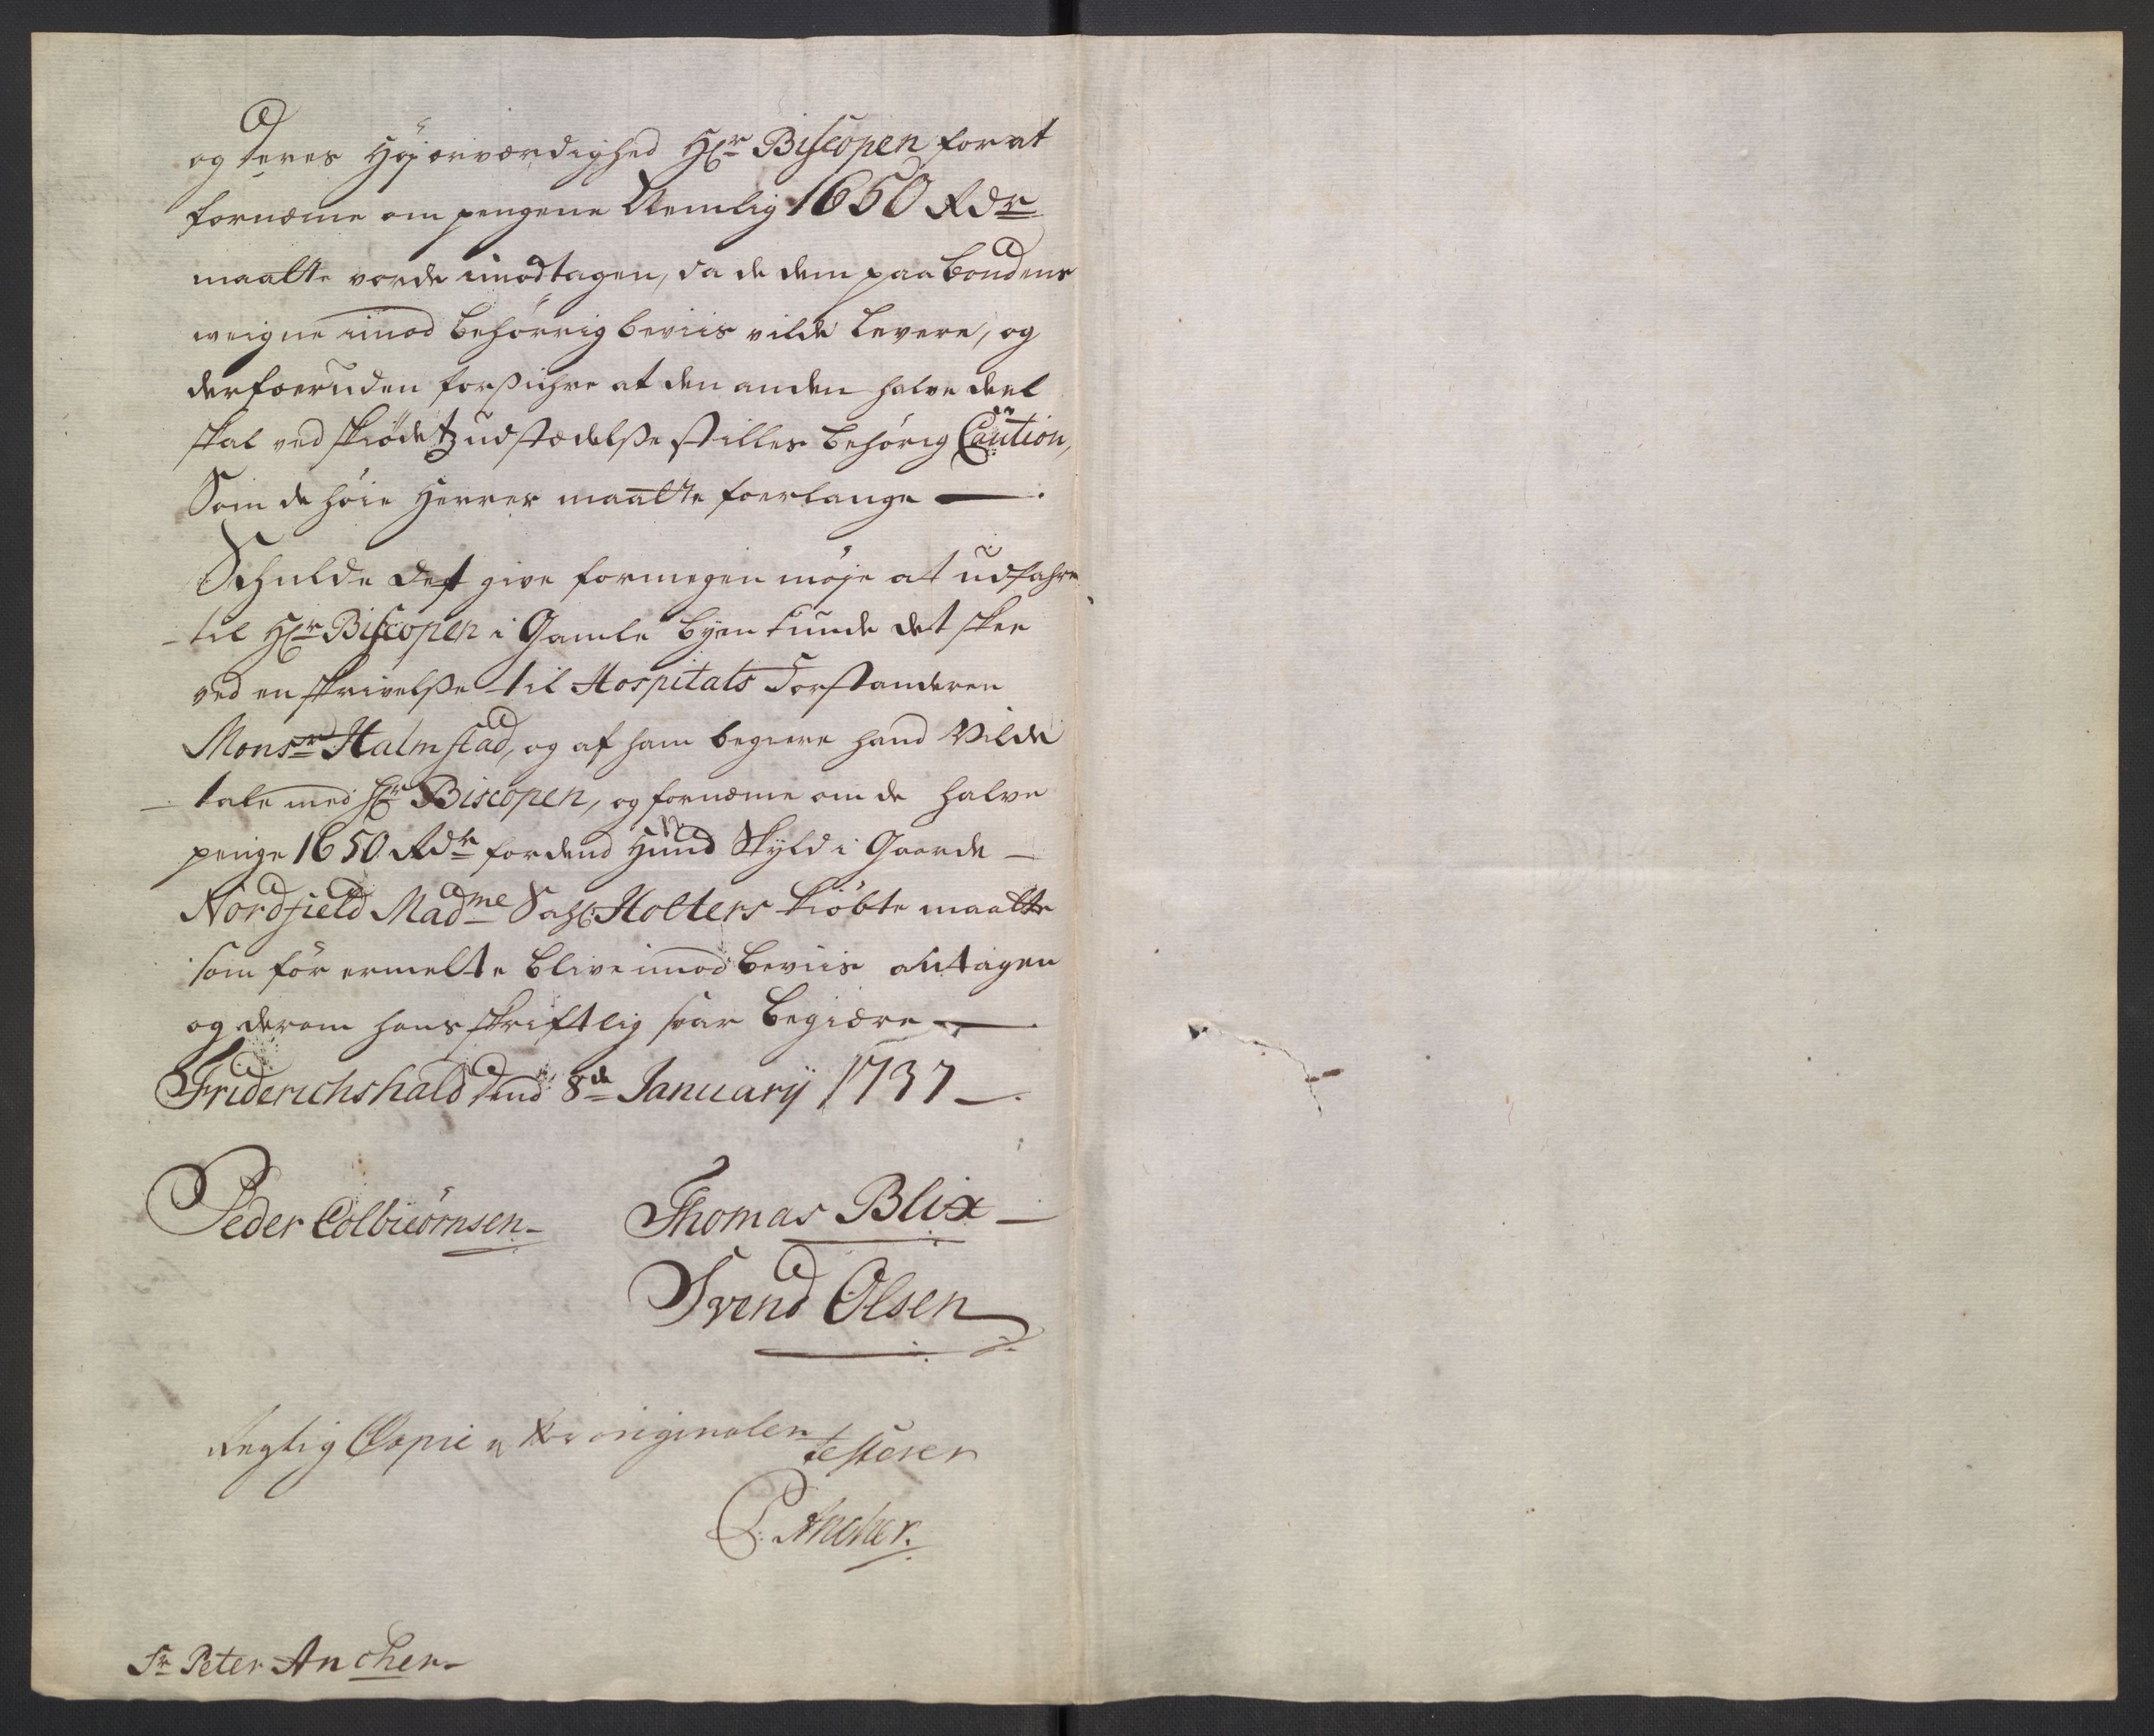 og deres Høj ærværdighed Hr Biscopen for at
fornæme om pengene Nemlig 1650 Rdr
maatte vorde imodtagen, da de dem paa bondens
weigne imod behørrig beviis vilde levere, og
derforuden forsichre at den anden halve deel
skal ved skiødetz udstædelsse stilles behørig Caution,
Som de høie Herrer maatte foerlange —.
Schulde det give formegen møje at udfahre
til Hr Biscopen i Gamle byen kunde det skee
ved en skrivelsse til Hospitals Forstanderen
Monsr Halmstad, og af ham begiere hand vilde
tale med Hr Biscopen, og fornæme om de halve
penge 1650 Rdr for dend Hund Skyld i Gaarde
Nordfield Madme Sahl: Holters kiøbte maatte
som før ermelte blive imod beviis antagen
og derom hans skriftlig svar begiære —.
Friderichshald dend 8de Januarij 1737 —.
Peder Colbieørnsen Thomas Blix —
Svend Olsen
Rigtig Copie originalen testerer
P: Ancher.
Sr Peter Ancher